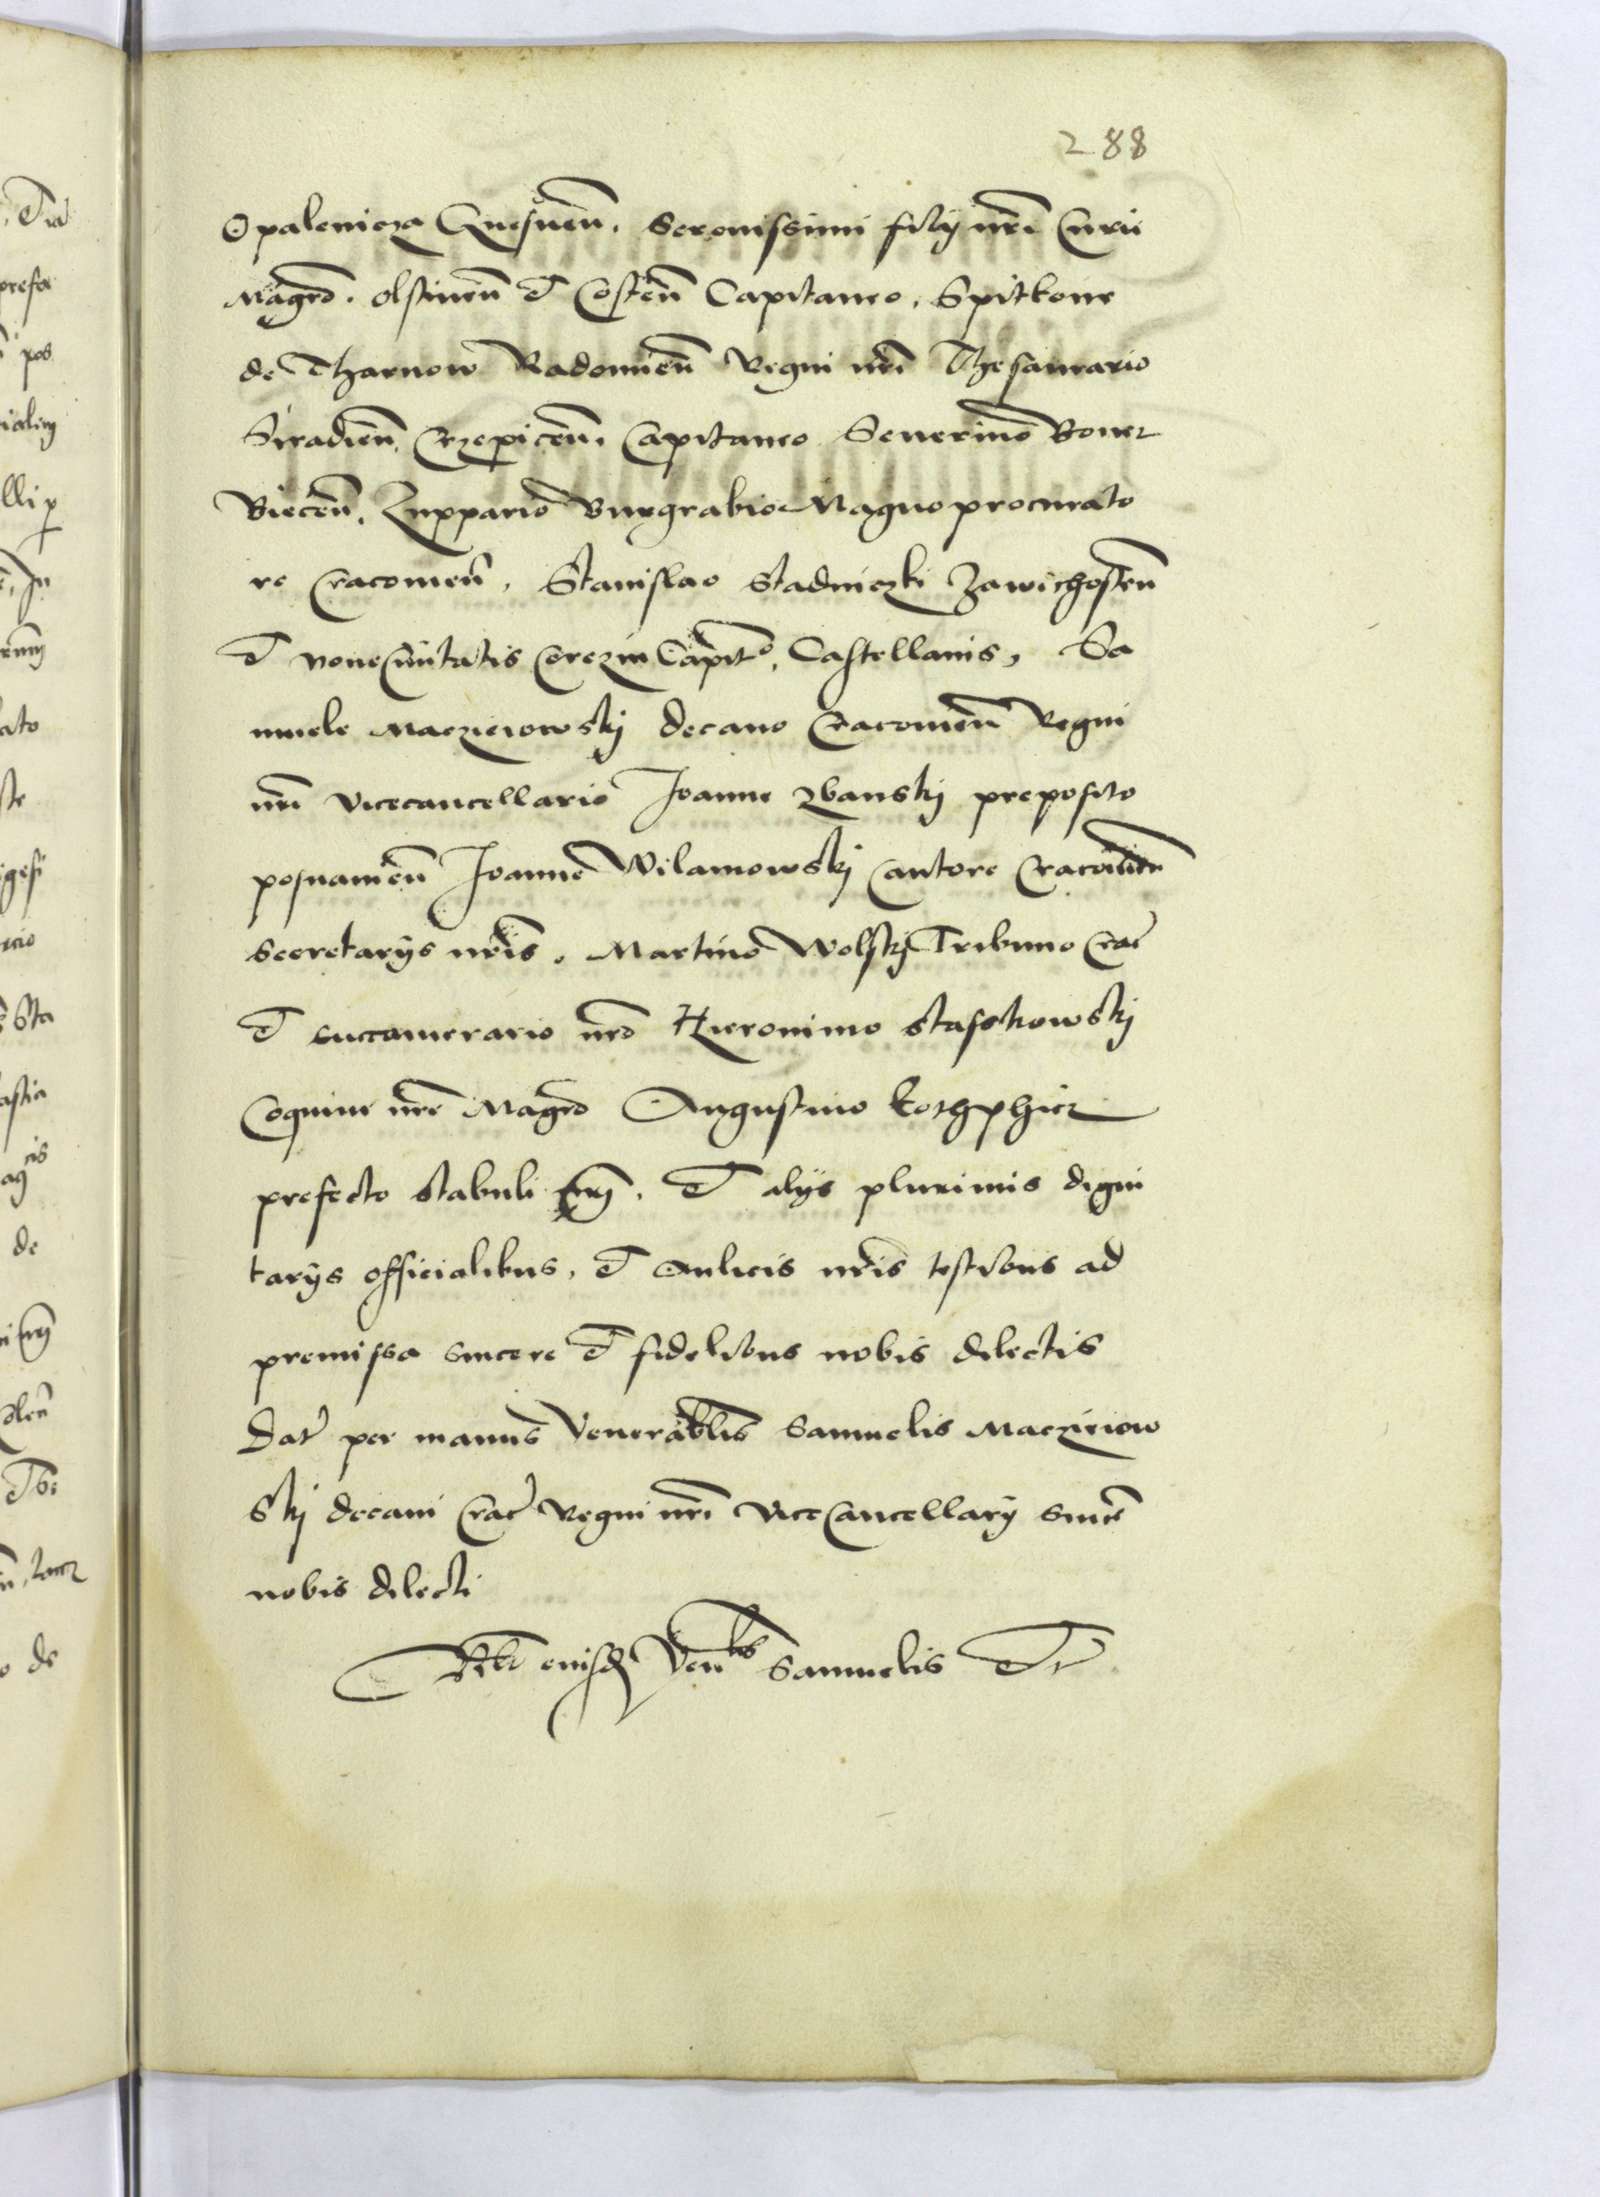 288
Opalenicza Gnesnen̄. Serenissimi filÿ nrī Curie
Magrō. olstinen̄ et Costen̄ Capitaneo, Spitkone
de Tharnow Radomien̄ Regni nrī Thesaurario
Siradien̄, Crzepicen̄. Capitaneo Seuerino Boner
Biecen̄. Zuppario Burgrabio Magno procurato
re Cracouien̄, Stanislao Stadniczki Zawichosten̄
et noue Ciuitatis Corczin Capito, Castellanis, Sa
muele Macziejowskj decano Cracouien̄ Regni
nrī vicecancellario Joanne zbanskj preposito
posnanien̄ Joanne Wilamowskj Cantore Cracouien̄
Secretarÿs nrīs. Martino Wolskj Tribuno Crac̄
et succamerario nrō Hieronimo Stafskowskj
Coquine nrē Magrō Augustino kothphicz
prefecto stabuli nrī. et alÿs plurimis digni
tarÿs officialibus, et Aulicis nrīs testibus ad
premissa sincere et fidelibus nobis dilectis
Dat̄ per manus Venerablis Samuelis Maczieiow
skj decani Crac̄ Regni nrī ViceCancellarÿ sincē
nobis dilecti
Rlō eiusd Venblis Samuelis etc